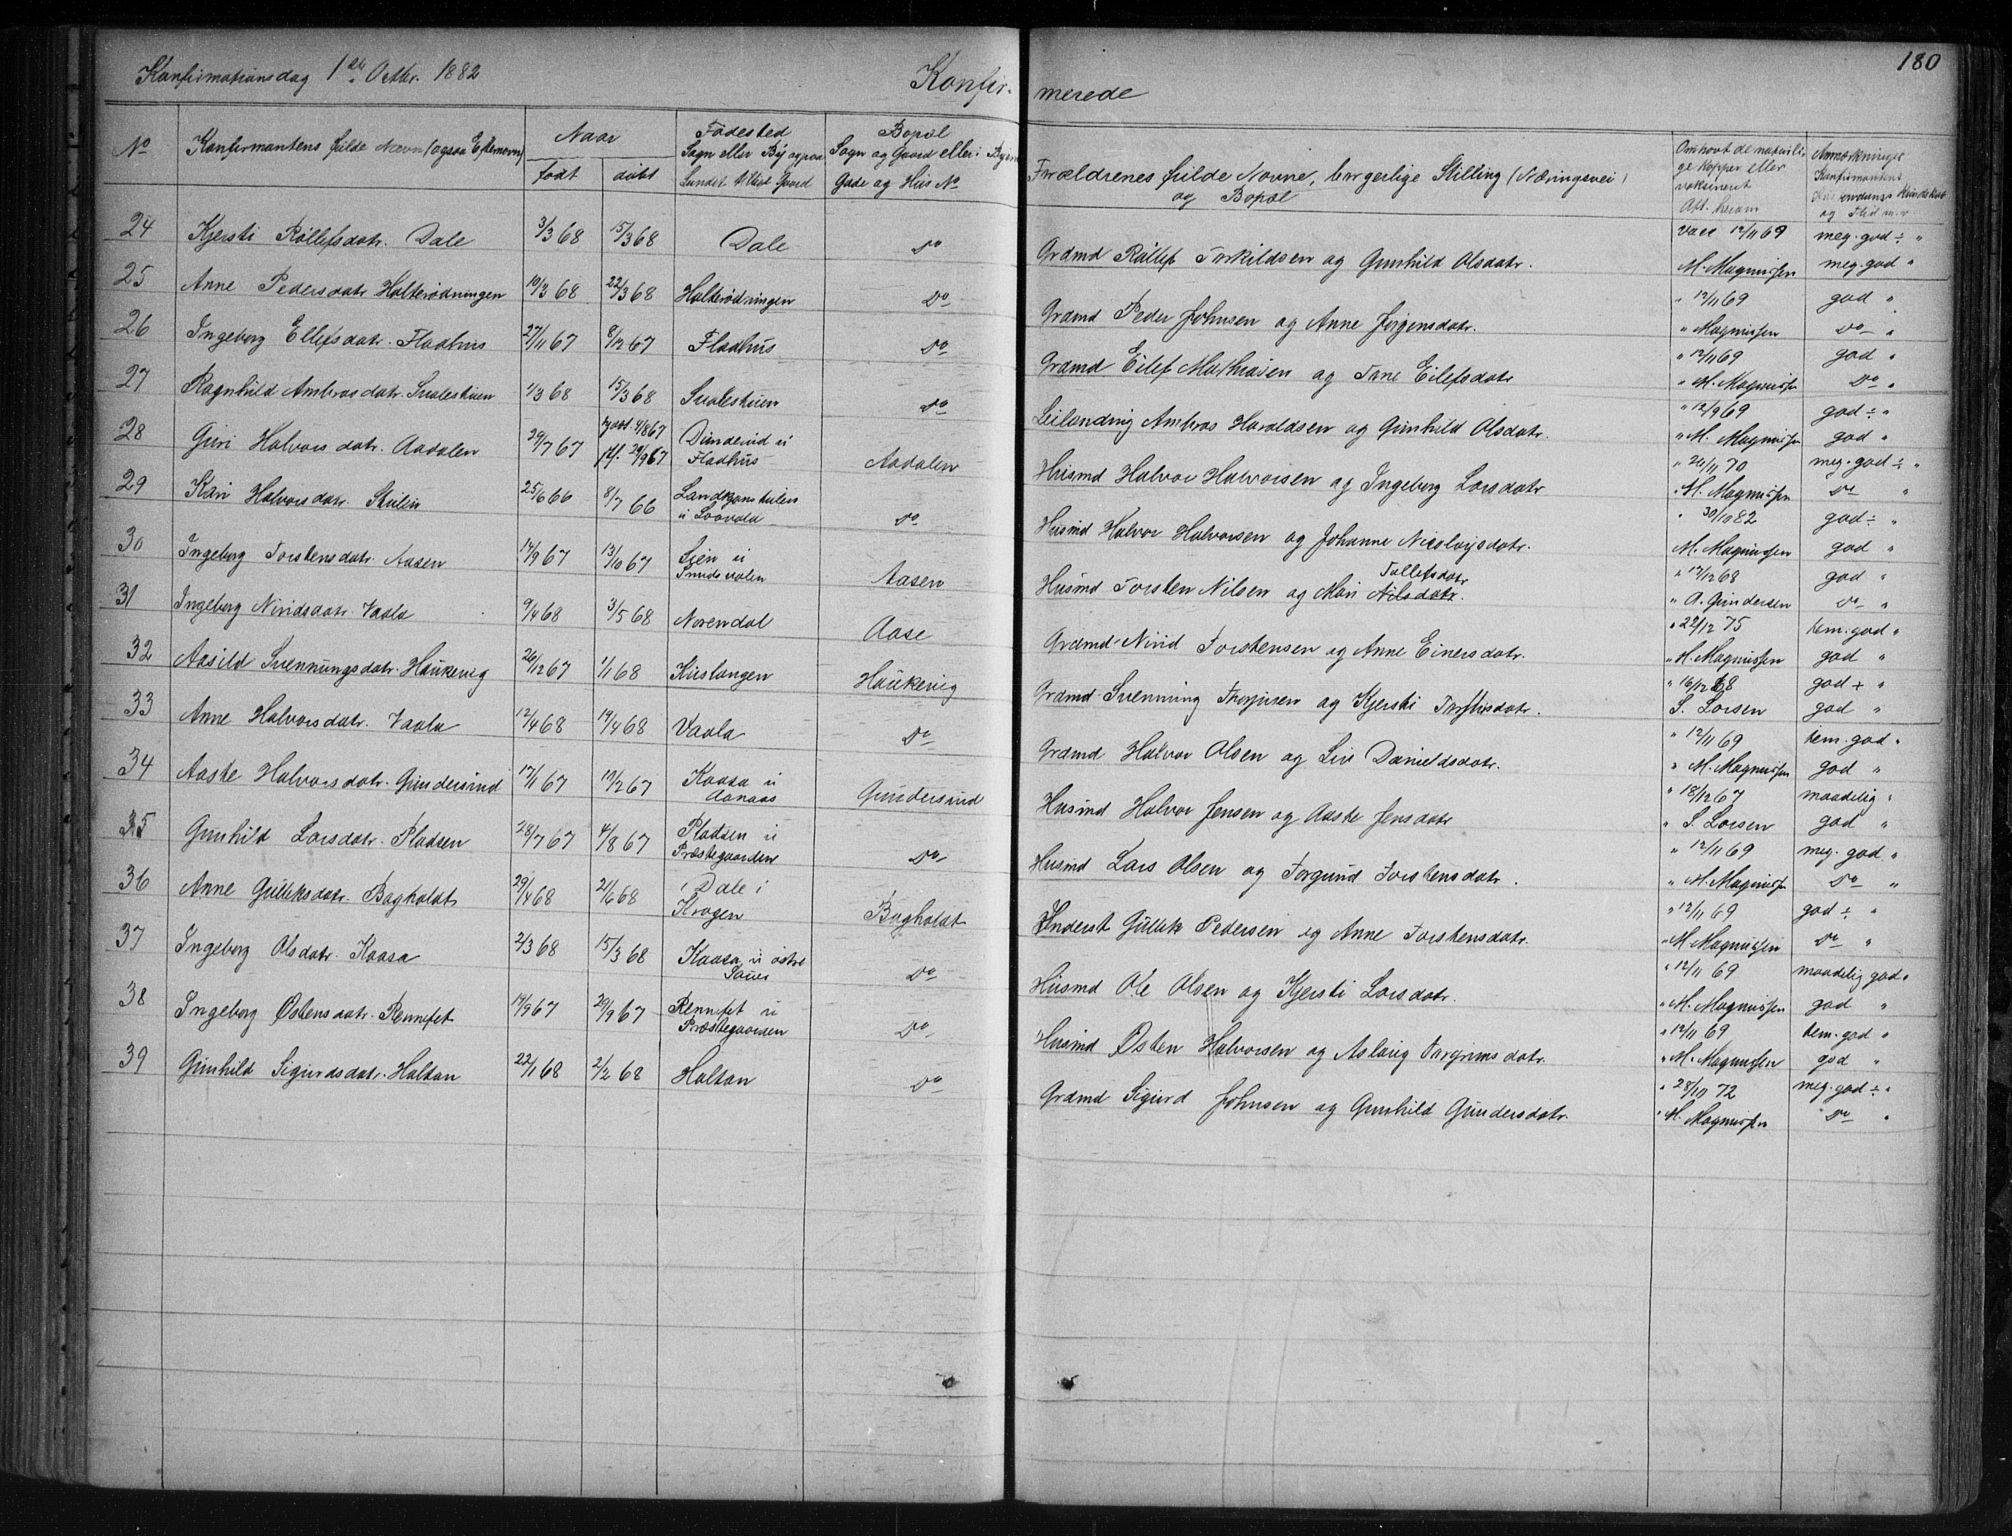 180
Konfirmationsdag 1ste Octbr. 1882
Konfir- merede
No
Konfirmantens fulde Navn (ogsaa Efternavn)
Naar
født
døbt
Fødested
Sogn eller By og paa
Landet tillige Gaard
Bopæl
Sogn og Gaard eller i Byen
Gade og Hus No
Forældrenes fulde Navne, borgerlige Stilling (Næringsvei)
og Bopæl
Om havt de naturli-
ge Kopper eller
vaksineret
Att. herom
Anmærkninger
Konfirmantens
Kundskab
og Flid m.v
24 Kjersti Rollefsdatr. Dale 3/3 68 15/3 68 Dale Do Grdmd Rollef Torkildsen og Gunhild Olsdatr. vacc 12/11 69 meg. god ÷ "
M. Magnussen meg. god "
25 Anne Pedersdatr Holterødningen 10/3 68 22/3 68 Holterødningen Do Grdmd Peder Johnsen og Anne Jørgensdatr. " 12/11 69 god "
" Magnussen Do "
26 Ingeborg Ellefsdatr. Fladhus 27/11 67 8/12 67 Fladhus Do Grdmd Eilef Mathisen og Tone Eilefsdatr " 12/11 69 god "
" M. Magnussen Do "
27 Ragnhild Ambrosdatr. Svalestuen 1/3 68 15/3 68 Svalestuen Do Leilending Ambros Haraldsen og Gunhild Olsdatr. " 12/9 69 god ÷ "
" M. Magnussen god "
28 Guri Halvorsdatr. Aadalen 29/7 67 4/8 67
29/9 67 u
Fladhus Aadalen Husmd Halvor Halvorsen og Ingeborg Larsdatr " 24/11 70 meg. god ÷ "
" M. Magnussen Do "
29 Kari Halvorsdatr. Skulin 25/6 66 8/7 66
u Do Husmd Halvor Halvorsen og Johanne Nicolaysdatr. " 30/10 82 god ÷ "
M. Magnussen god "
30 Ingeborg Torstensdatr. Aasen 14/9 67 13/10 67 u
Aasen Husmd Torsten Nilsen og Mari Nilsdatr. Tollefsdatr " 17/12 68 god "
" A. Gundersen Do "
31 Ingeborg Niridsdatr. Vaala 9/4 68 3/5 68 Norendal Aase Grdmd Nirid Torstensen og Anne Einersdatr. " 22/12 75 tem. god "
" M. Magnussen god "
32 Aasild Svenningsdatr. Haukevig 26/12 67 1/1 68 Kustangen Haukevig Grdmd Svenning Thorjusen og Kjersti " 16/12 68 god + "
S. Larsen god "
33 Anne Halvorsdatr. Vaala 12/4 68 19/4 68 Vaala Do Grdmd Halvor Olsen og Liv Danieldsdatr. " 12/11 69 tem. god "
" M. Magnussen god "
34 Aaste Halvorsdatr. Gundersund 17/11 67 10/12 67 Kaasa u
Aanaas Gundersund Husmd Halvor Jensen og Aaste Jensdatr " 18/12 67 maadelig "
" S. Larsen god "
35 Gunhild Larsdatr. Pladsen 28/7 67 4/8 67 Pladsen u
Præstegaarden Do Husmd Lars Olsen og Torgund Torstensdatr. " 12/11 69 meg. god "
" M. Magnussen Do "
36 Anne Gulliksdatr. Bagholdt 29/4 68 21/6 68 Dale i
Krogen Bagholdt Inderst Gullik Pedersen og Anne Torstensdatr. " 12/11 69 god ÷ "
" M. Magnussen Do "
37 Ingeborg Olsdatr. Kaasa 2/3 68 15/3 68 Kaasa u østre
Saue Do Husmd Ole Olsen og Kjersti Larsdatr. " 12/11 69 maadelig god "
" M. Magnussen god "
38 Ingeborg Østensdatr. Rennefet 14/9 67 29/9 67 Rennefet u
Præstegaarden Do Husmd Østen Halvorsen og Aslaug Torgrimsdatr. " 12/11 69 tem. god "
" M. Magnussen god "
39 Gunhild Sigurdsdatr. Holtan 22/1 68 2/2 68 Holtan Do Grdmd Sigurd Johnsen og Gunhild Gundersdatr. " 28/10 72 meg. god ÷ "
" M. Magnussen Do "